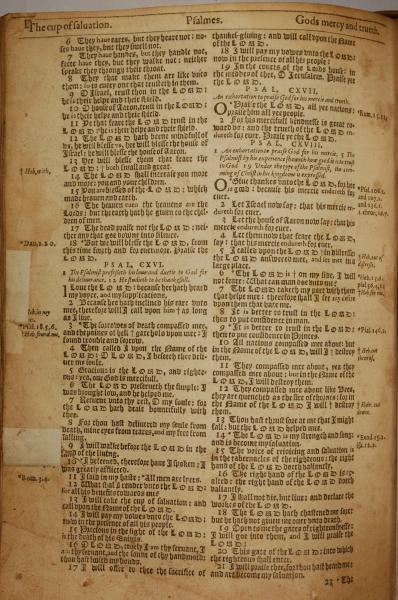 The cup of saluation.
Psalmes.
Gods mercy and trueth.
6 They haue eares, but they heare not: no-
ses haue they, but they smell not.
7 They haue hands, but they handle not,
feete haue they, but they walke not: neither
speake they through their throat.
8 They that make them are like vnto
them: so is euery one that trusteth in them.
9 O Israel, trust thou in the LORD:
he is their helpe and their shield.
10 O house of Aaron, trust in the LORD:
he is their helpe and their shield.
11 Ye that feare the LORD trust in the
LORD: he is their helpe and their shield.
12 The LORD hath beene mindfull of
vs, he will blesse vs, he will blesse the house of
Israel: he will blesse the house of Aaron.
13 Hee will blesse them that feare the
LORD: both small and great.
14 The LORD shall increase you more
and more: you and your children.
15 You are blessed of the LORD: which
made heauen and earth.
16 The heauen euen the heauens are the
Lords: but the earth hath he giuen to the chil-
dren of men.
17 The dead praise not the LORD: nei-
ther any that goe downe into silence.
18 *But we will blesse the LORD, from
this time foorth and for euermore. Praise the
LORD.
PSAL. CXVI.
1 I Loue the LORD: because hee hath heard
my voyce, and my supplications,
2 Because hee hath inclined his eare vnto
me, therefore will I call vpon him as long
as I liue.
3 *The sorrowes of death compassed mee,
and the paines of hell gate hold vpon mee: I
found trouble and sorrow.
4 Then called I vpon the Name of the
LORD: O LORD, I beseech thee deli-
uer my soule.
5 Gracious is the LORD, and righte-
ous: yea, our God is mercifull.
6 The LORD preserueth the simple: I
was brought low, and he helped me.
7 Returne vnto thy rest, O my soule: for
the LORD hath dealt bountifully with
thee.
8 For thou hast deliuered my soule from
death, mine eyes from teares, and my feet from
falling.
9 I will walke before the LORD in the
land of the liuing.
10 *I beleeued, therefore haue I spoken: I
was greatly afflicted.
11 I said in my haste: *All men are lyers.
12 What shall I render vnto the LORD:
for all his benefits towards me?
13 I will take the cup of saluation: and
call vpon the Name of the LORD.
14 I will pay my vowes vnto the LORD:
now in the presence of all his people.
15 Precious in the sight of the LORD:
is the death of his Saints.
16 O LORD, truely I am thy seruant, I
am thy seruant, and the sonne of thy handmaid:
thou hast loosed my bonds.
17 I will offer to thee the sacrifice of
thanksgiuing: and will call vpon the Name
of the LORD.
18 I will pay my vowes vnto the LORD:
now in the presence of all his people:
19 In the courts of the Lords house: in
the middes of thee, O Jerusalem. Praise ye
the LORD.
PSAL. CXVII.
An exhortation to praise God for his mercie and trueth.
O *Praise the LORD, all yee nations:
praise him all yee people.
2 For his mercifull kindnesse is great to-
ward vs: and the trueth of the LORD en-
dureth for euer. Praise ye the LORD.
PSAL. CXVIII.
O *Giue thankes vnto the LORD, for he
is good: because his mercie endureth for
euer.
2 Let Israel now say: that his mercie en-
dureth for euer.
3 Let the house of Aaron now say: that his
mercie endureth for euer.
4 Let them now that feare the LORD
say: that his mercie endureth for euer.
5 I called vpon the LORD in distresse:
the LORD answered mee, and set mee in a
large place.
6 *The LORD is on my side, I will
not feare: what can man doe vnto me?
7 The LORD taketh my part with them
that helpe mee: therefore shall I see my desire
vpon them that hate me.
8 It is better to trust in the LORD:
then to put confidence in man.
9 *It is better to trust in the LORD:
then to put confidence in Princes.
10 All nations compassed mee about: but
in the Name of the LORD, will I destroy
them.
11 They compassed mee about, yea they
compassed mee about: but in the Name of the
LORD, I will destroy them.
12 They compassed mee about like Bees,
they are quenched as the fire of thornes: for in
the Name of the LORD I will destroy
them.
13 Thou hast thrust sore at me that I might
fall: but the LORD helped me.
14 *The LORD is my strength and song:
and is become my saluation.
15 The voice of reioycing and saluation is
in the tabernacles of the righteous: the right
hand of the LORD doeth valiantly.
16 The right hand of the LORD is ex-
alted: the right hand of the LORD doeth
valiantly.
17 I shall not die, but liue: and declare the
workes of the LORD.
18 The LORD hath chastened me sore:
but he hath not giuen me ouer vnto death.
19 Open to me the gates of righteousnesse:
I will goe into them, and I will praise the
LORD:
20 This gate of the LORD: into which
the righteous shall enter.
21 I will praise thee, for thou hast heard me:
and art become my saluation.
23 The